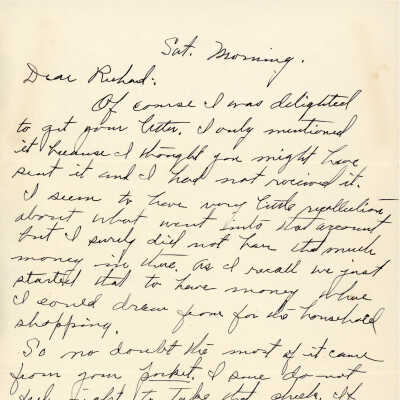 Sat. Morning.
Dear Richard:
Of course I was delighted
to get your letter. I only mentioned
it because I thought you might have
sent it and I had not received it.
I seem to have very little recollection
about what went into that account
but I surely did not have that much
money in there. As I recall we just
started that to have money where
I could draw from for the household
shopping.
So no doubt the most of it came
from your pocket. I sure do not
feel right to take that check. If